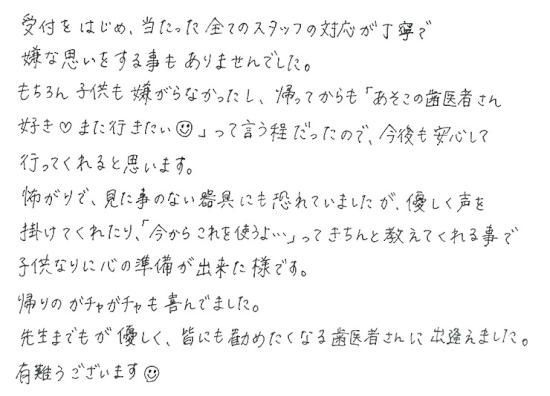 受付をはじめ、当たった全てのスタッフの対応が丁寧で
嫌な思いをする事もありませんでした。
もちろん子供も嫌がらなかったし、帰ってからも「あそこの歯医者さん
好き♡また行きたい☺」って言う程だったので、今後も安心して
行ってくれると思います。
怖がりで、見た事のない器具にも恐れていましたが、優しく声を
掛けてくれたり、「今からこれを使うよ…」ってきちんと教えてくれる事で
子供なりに心の準備が出来た様です。
帰りのガチャガチャも喜んでました。
先生までもが優しく、皆にも勧めたくなる歯医者さんに出逢えました。
有難うございます☺